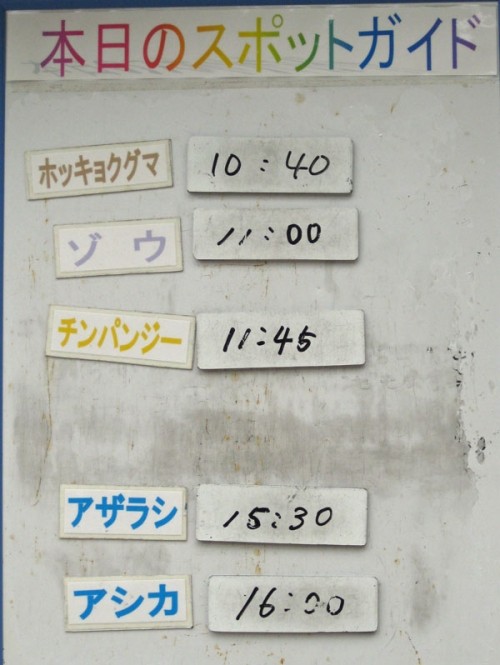 本日のスポットガイド
ホッキョクグマ 10:40
ゾウ 11:00
チンパンジー 11:45
アザラシ 15:30
アシカ 16:00